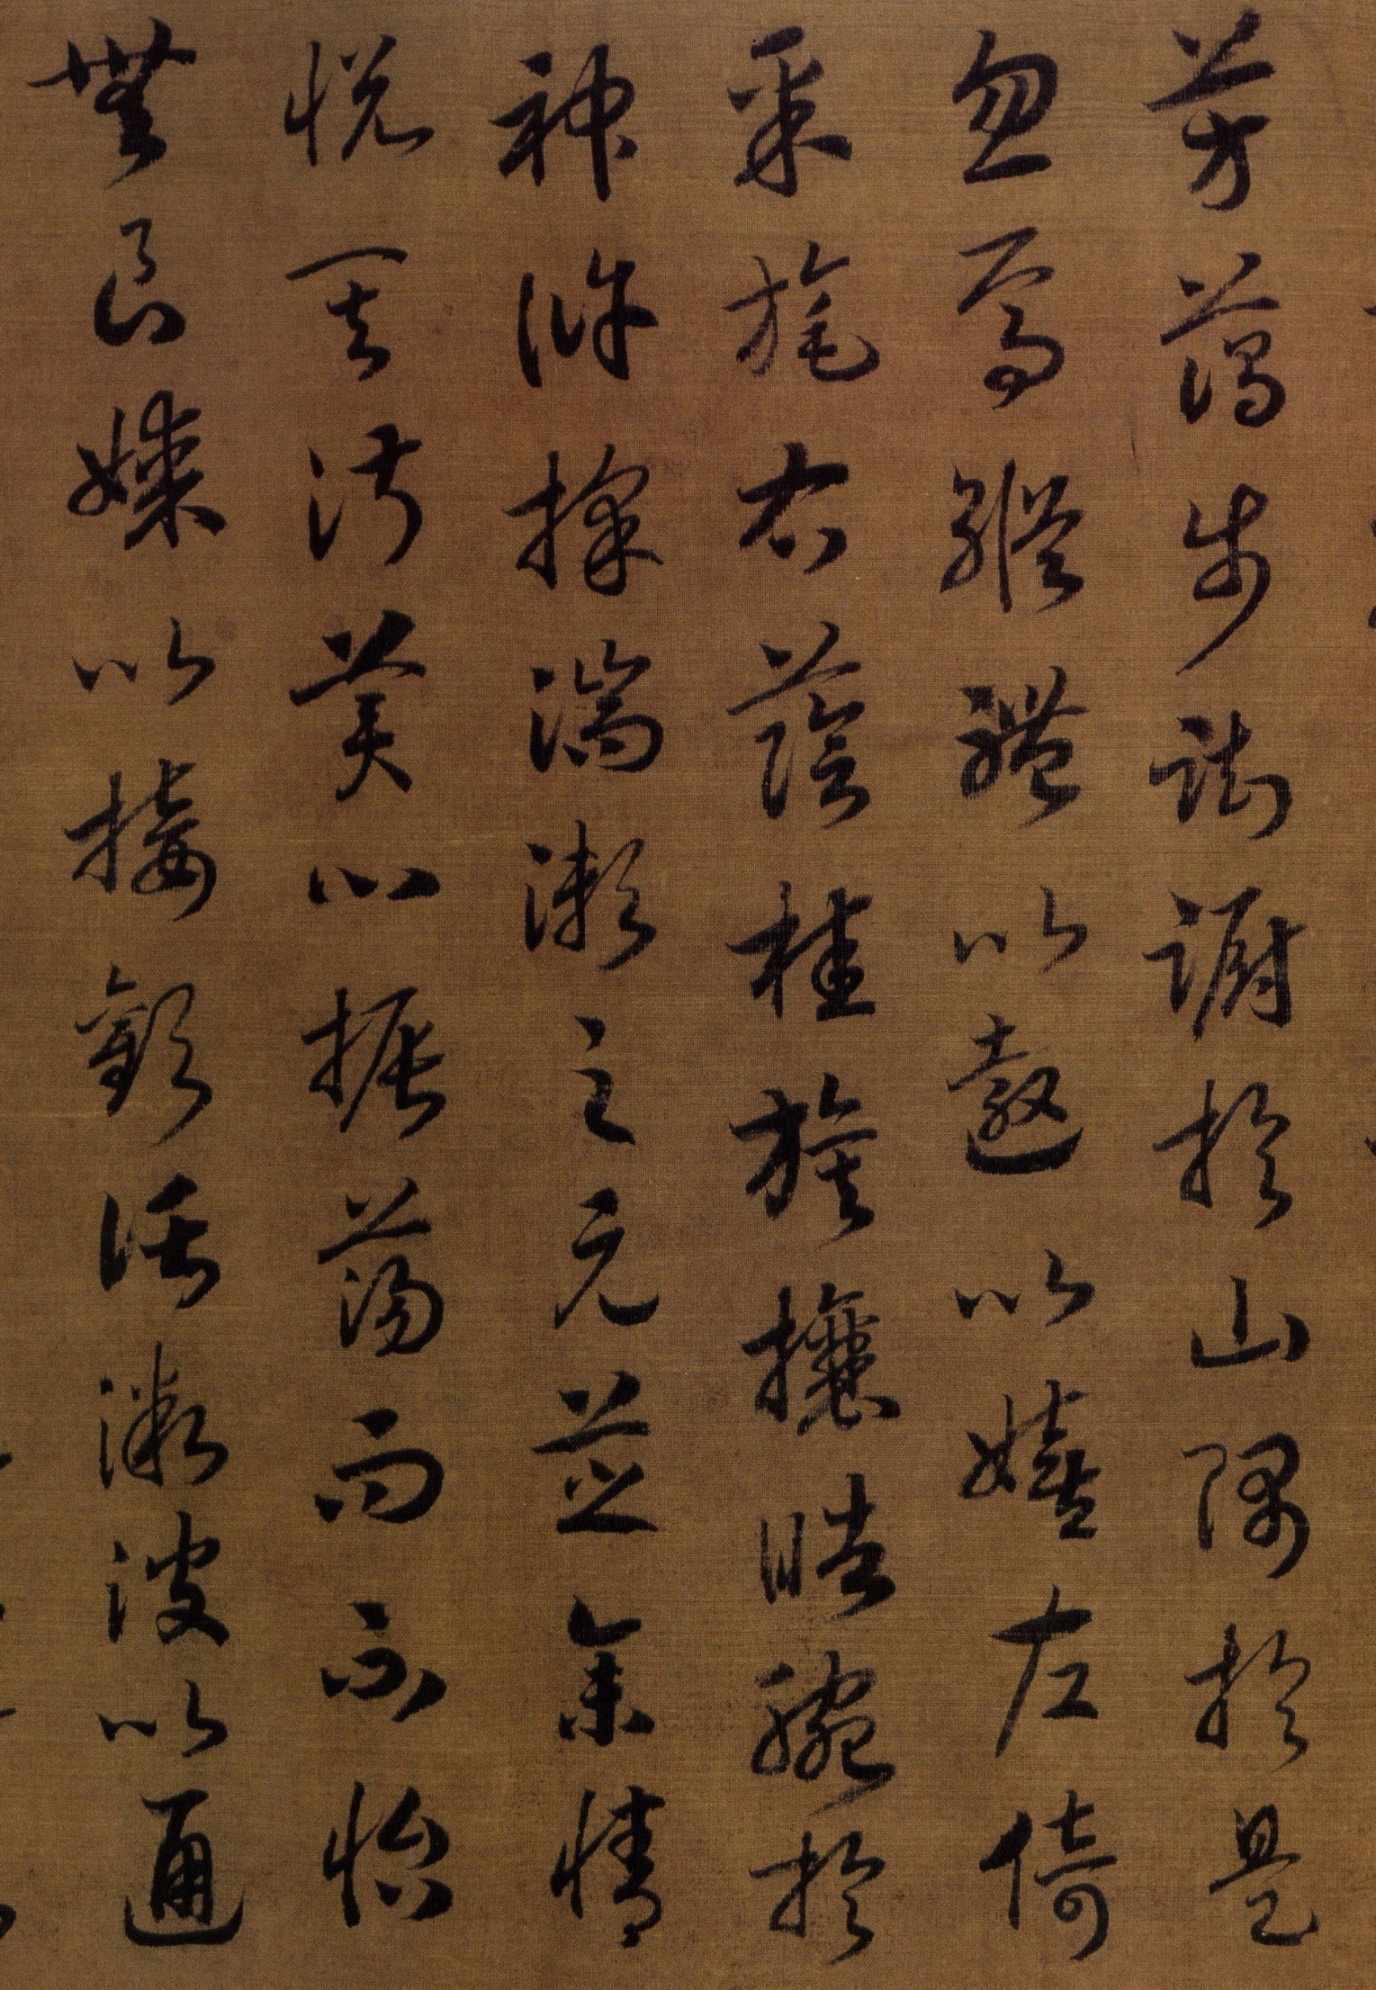 芳藹步踟躕於山隅於是
忽焉縱體以遨以嬉左倚
采旄右蔭桂旗攘皓腕於
神滸採湍瀨之元芝余情
悅其淑美心振蕩而不怡
無良媒以接歡託微波以通